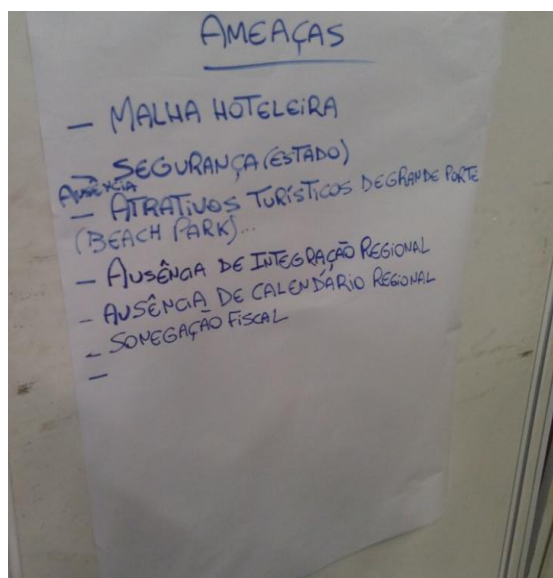 AMEAÇAS
— MALHA HOTELEIRA
— SEGURANÇA (ESTADO)
AUSÊNCIA
— ATRATIVOS TURÍSTICOS DE GRANDE PORTE
(BEACH PARK)...
— AUSÊNCIA DE INTEGRAÇÃO REGIONAL
— AUSÊNCIA DE CALENDÁRIO REGIONAL
— SONEGAÇÃO FISCAL
—